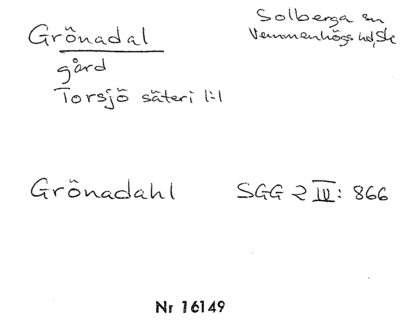 Grönadal
Solberga sn
Vemmenhögs hd, Sk
gård
Torsjö säteri 1:1
Grönadahl SGG 2 IV: 866
Nr 16149